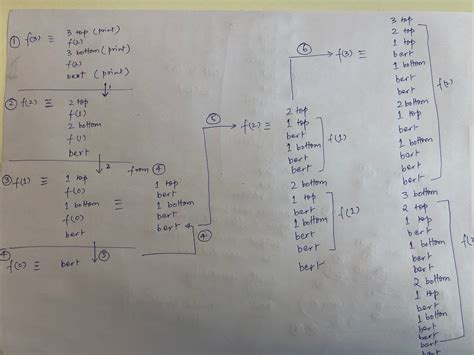 ① f(3) ≡ 3 top (print)
f(2)
3 bottom (print)
f(2)
bert (print)
1
② f(2) ≡ 2 top
f(1)
2 bottom
f(1)
bert
2
③ f(1) ≡ 1 top
f(0)
1 bottom ≡
f(0)
bert
from ④
1 top
bert
1 bottom
bert
bert
④
③
f(0) ≡ bert
⑤ f(2) ≡
2 top
1 top
bert
1 bottom
bert
bert
f(1)
2 bottom
1 top
bert
1 bottom
bert
bert
f(1)
bert
⑥ f(3) ≡
3 top
2 top
1 top
bert
1 bottom
bert
bert
2 bottom
1 top
bert
1 bottom
bert
bert
bert
3 bottom
2 top
1 top
bert
1 bottom
bert
bert
2 bottom
1 top
bert
1 bottom
bert
bert
bert